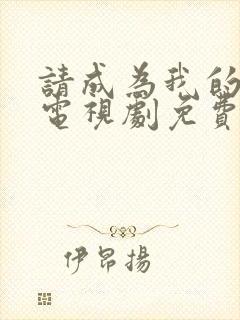 請成為我的
電視劇免費
伊昂揚